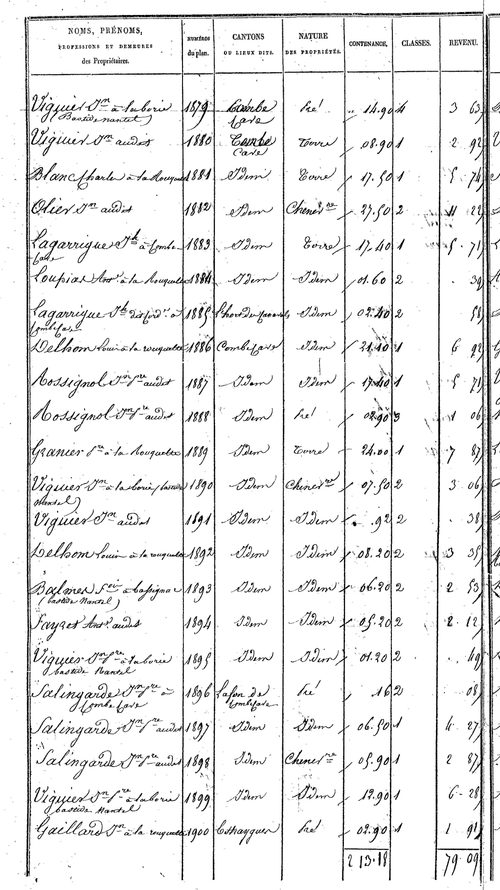 NOMS, PRÉNOMS, PROFESSIONS ET DEMEURES des Propriétaires. NUMÉROS du plan. CANTONS OU LIEUX DITS. NATURE DES PROPRIÉTÉS. CONTENANCE. CLASSES. REVENU.
Viguier Jn à laborie 1879 Combe Pré 14.90 4 3 63
(Bastide nantel) Cave
Viguier Jn audit 1880 Combe Terre 08.90 1 2 92
Cave
Blanc Charles à la Rouquette 1881 Idem Terre 17.50 1 5 74
Olier Jn audit 1882 Idem 27.50 2 11 22
Lagarrigue à Combe 1883 Idem Terre 17.40 1 5 71
Cave
Loupias Ant. à la Rouquette 1884 Idem Idem 01.60 2 39
Lagarrigue à 1885 Idem 02.40 2 58
Combecave
Delhom Louis à la rouquette 1886 Combecave Idem 21.10 1 6 92
Rossignol Jn audit 1887 Idem Idem 17.40 1 5 71
Rossignol Jn audit 1888 Idem Pré 02.90 3 1 06
Granier à la Rouquette 1889 Idem Terre 24.00 1 7 87
Viguier Jn à laborie (bastide 1890 Idem 07.50 2 3 06
nantel)
Viguier Jn audit 1891 Idem Idem 92 2 38
Delhom Louis à la rouquette 1892 Idem Idem 08.20 2 3 35
Balmes à 1893 Idem Idem 06.20 2 2 53
(bastide Nantel)
Fayret Ant. audit 1894 Idem Idem 05.20 2 2 12
Viguier Jn à laborie 1895 Idem Idem 01.20 2 49
bastide Nantel
Salingarde Jn à 1896 Lafon de Pré 16 2 08
Combe Cave Combecave
Salingarde Jn audit 1897 Idem Idem 06.50 1 4 27
Salingarde Jn audit 1898 Idem 05.90 1 2 87
Viguier Jn à laborie 1899 Idem Idem 12.90 1 6 28
bastide Nantel
Gaillard Jn à la rouquette 1900 Pré 02.90 1 1 91
2 13.18 79 09